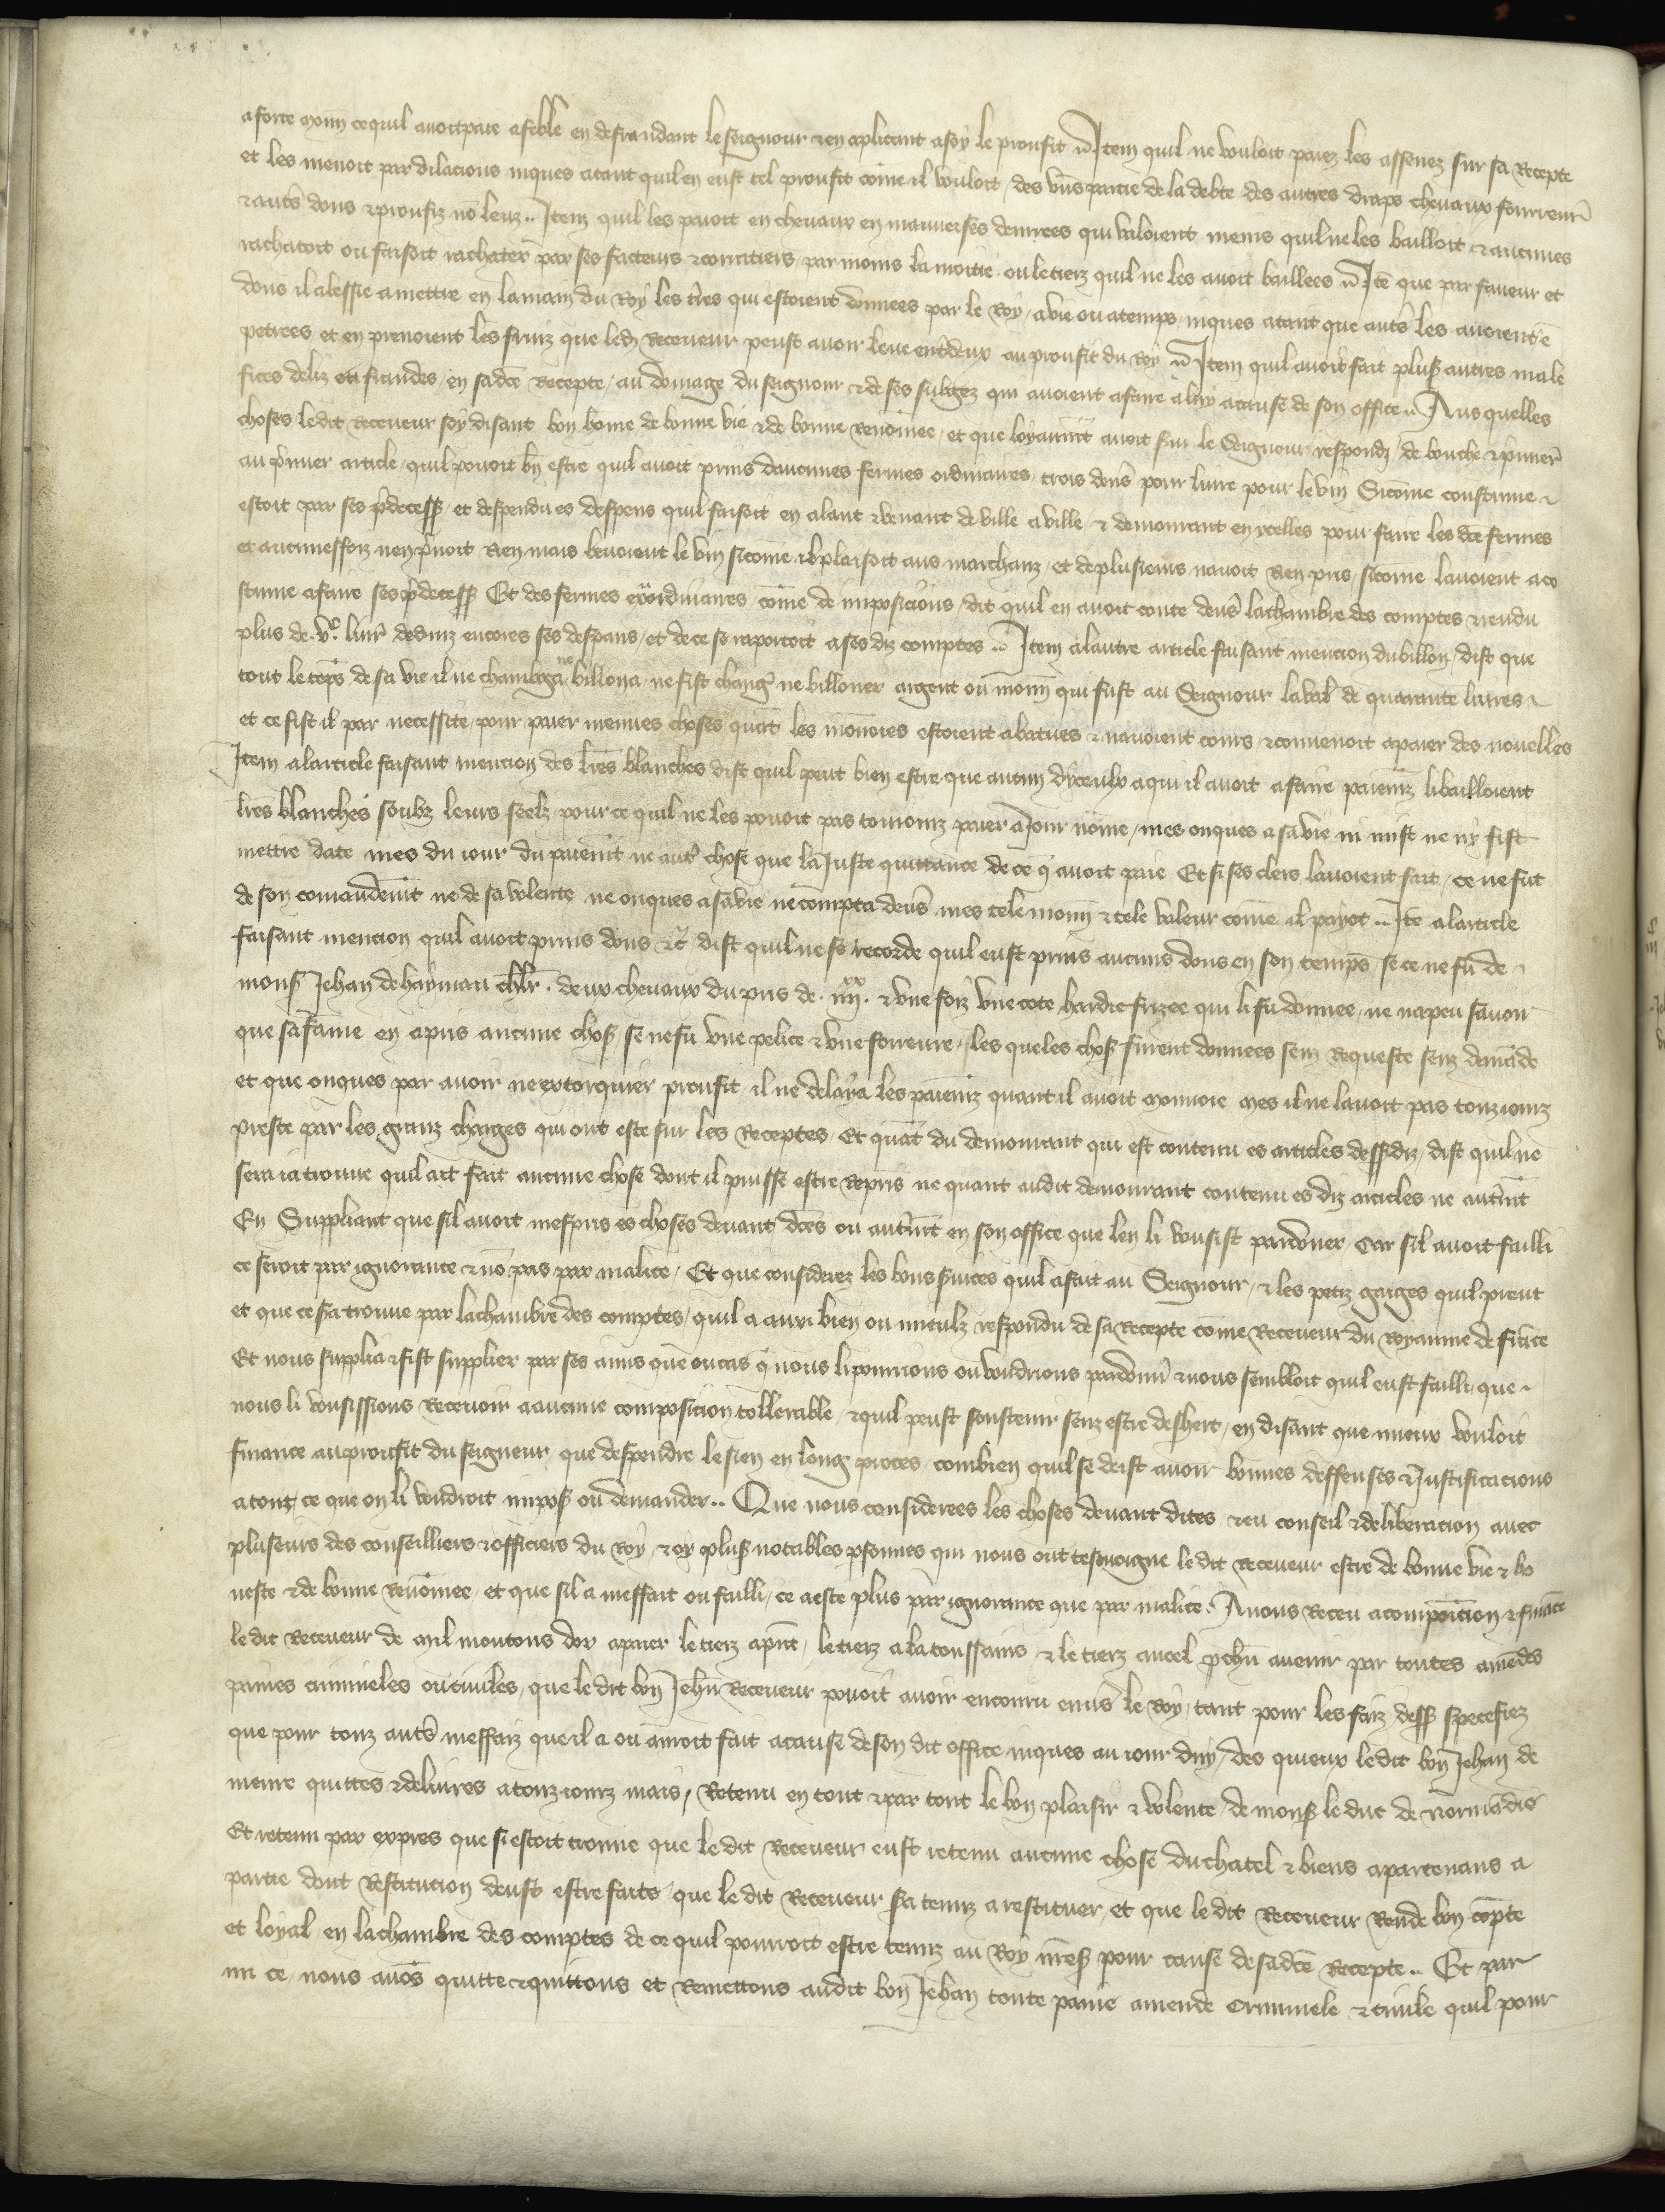 a forte monn ce quil avoit paie a feble en defraudant le seignour et en aplicant a soy le proufit Item quil ne vouloit paiez les assenez sur sa Recepte
et les menoit par dilacions iuques atant quil en eust tel proufit come il vouloit / des uns partie de la debte des autres draps chevaux fourreur
et auts dons et proufiz no leuz .. Item quil les paioit en chevaux en mauveises denrees qui valoient meins quil ne les bailloit et aucunes
rachatoit ou faisoit rachater par ses facteurs et courratiers par moins la moitie ou le tierz quil ne les avoit baillees Ite que par faveur et
dons il a lessie a mettre en la main du Roy les tres qui estoient donnees par le Roy / a vie ou a temps iuques atant que auts les avoient e
petrees et en prenoient les fruiz que led Receveur peust avoir leve entdeux au proufit du Roy Item quil avoit fait plus autres male
fices deliz et fraudes / en sa dce Recepte / au domage du seignour et de ses subgez qui avoient a faire a luy a cause de son office .. Aus quelles
choses le dit Receveur soy disant bon home de bonne vie et de bonne Renomee / et que loyaumt avoit servi le Seignour respondi / de bouche et pmier
au pmier article / quil pouoit bn estre quil avoit prins daucunes fermes ordinaires / trois dens pour livre pour le vin Sicome coustume
estoit par ses pdecess et despendu es despens quil faisoit en alant et venant de ville a ville / et demourant en ycelles pour faire les dces fermes
et aucuneffoiz nen pnoit Rien mais bevoient le vin sicome il plaisoit aus marchanz / et de plusieurs navoit Rien pris / sicome lavoient aco
stume a faire ses pdecess Et des fermes exordinaires / come de imposicions / dit quil en avoit conte devs la chambre des comptes et rendu
plus de .vc. livr desduiz encores ses despans / et de ce se raportoit a ses diz comptes .. Item a lautre article faisant mencion du billon / dist que
tout le teps de sa vie il ne chambga ne billona / ne fist changier ne billoner argent ou monn qui fust au Seignour la val de quarante livres
et ce fist il par necessite / pour paier menues choses quat les monoies estoient abatues et navoient cours et convenoit a paier des nouelles
Item a larticle faisant mencion des lres blanches dist quil peut bien estre que aucun dyceulx a qui il avoit a faire paiemz li bailloient
lres blanches soubz leurs seelz pour ce quil ne les pouoit pas touiourz paier a Jour nome / mes onques a sa vie ni mist ne ny fist
mettre date mes du iour du paiemt ne autr chose que la Juste quittance de ce q avoit paie Et si ses clers lavoient fait / ce ne fut
de son comandemt ne de sa volente ne onques a sa vie ne compta devs mes tele monn et tele valeur come il paiot .. Ite a larticle
faisant mencion quil avoit prins dons etc dist quil ne se recorde quil eust prins aucuns dons en son temps se ce ne fu de
mons Jehan de haynau chlr . deux chevaux du pris de . iiiixx . et une foiz une cote hardie frizee qui li fu donnee / ne na peu savoir
que sa fame en a pris aucune chos se ne fu une pelice et une forreure / les queles chos furent donnees senz Requeste senz demade
et que onques par avoir ne extorquier proufit / il ne delaya les paiemz quant il avoit monnoie mes il ne lavoit pas touz iourz
preste par les granz charges qui ont este sur les Receptes / Et quat du demourant qui est contenu es articles dessdiz / dist quil ne
sera ia trouve quil ait fait aucune chose dont il puisse estre Repris ne quant audit demourant contenu es diz articles ne autrmt
En Suppliant que sil avoit mespris es choses devant dces ou autrmt en son office que len li vousist pardoner car sil avoit failli
ce seroit par ignorance et no pas par malice / Et que considerez les bons services quil a fait au Seignour / et les petiz gaiges quil prent
et que ce sera trouve par la chambre des comptes / quil a aussi bien ou mieulz respondu de sa Recepte come Receveur du Royaume de france
Et nous supplia et fist supplier par ses amis que ou cas q nous li pourrions ou voudrions pardonr et nous sembloit quil eust failli / que
nous li vousissions Recevoir a aucune composicion tollerable / et quil peust soustenir senz estre deshert / en disant que mieux vouloit
finance au proufit du seigneur / que despendre le sien en long proces / combien quil se deist avoir bonnes deffenses et Justificacions
a tout ce que on li voudroit impos ou demander .. Que nous considerees les choses devant dites et eu conseil et deliberacion avec
pluseurs des conseilliers et officiers du Roy / et oy pluss notables psonnes qui nous ont tesmoigne le dit Receveur estre de bonne vie et ho
neste et de bonne Renomee / et que sil a meffait ou failli / ce a este plus par ignorance que par malice . Avons Receu a composicion et finace
le dit Receveur de mil moutons dor a paier le tierz apnt / le tierz a la toussains et le tierz a noel pchn avenir par toutes amedes
paines criminèles ou civiles / que le dit bon Jehn Receveur pouoit avoir encouru envs le Roy / tant pour les faiz dess specefiez
que pour touz auts meffaiz que il a ou auroit fait a cause de son dit office iuques au iour duy / des quieux le dit bon Jehan de
meure quittes et delivres a touz iourz mais / Retenu en tout et par tout le bon plaisir et volente / de mons le duc de normadie
Et retenu par expres que si estoit trouve que le dit Receveur eust retenu aucune chose du chatel et biens apartenans a
partie dont Restitucion deust estre faite / que le dit Receveur sera tenuz a restituer / et que le dit Receveur Rende bon copte
et loyal en la chambre des comptes de ce quil pourroit estre tenuz au Roy mess pour cause de sa dce Recepte .. Et par
mi ce / nous avos quitte et quittons et Remettons audit bon Jehan toute paine amende criminele et civile quil pour